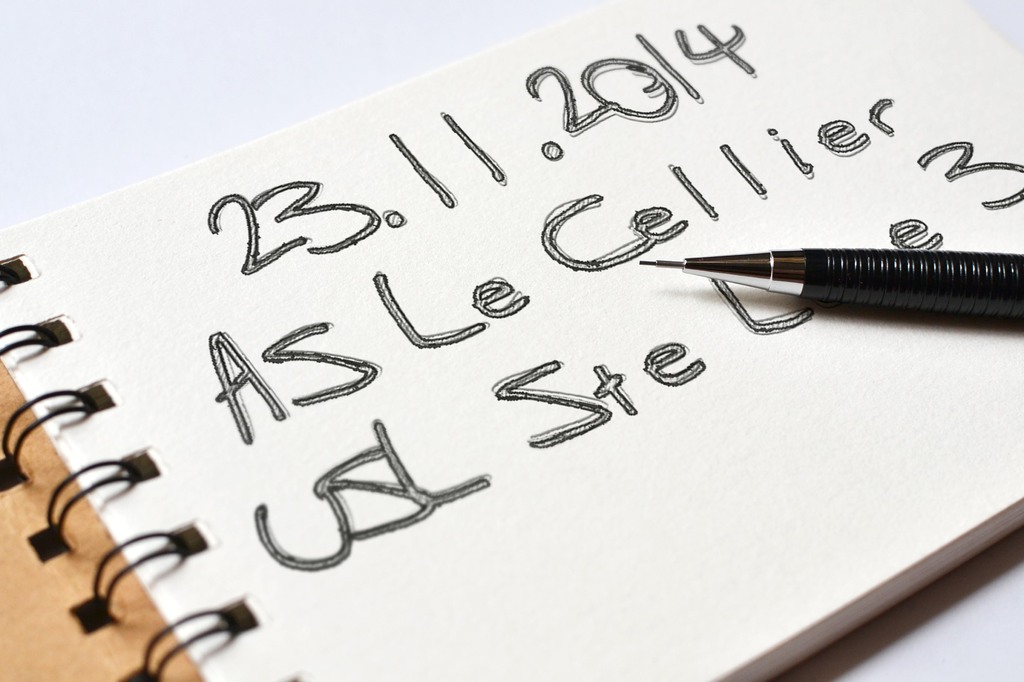 23.11.2014
AS Le Cellier 3
USL Ste L e